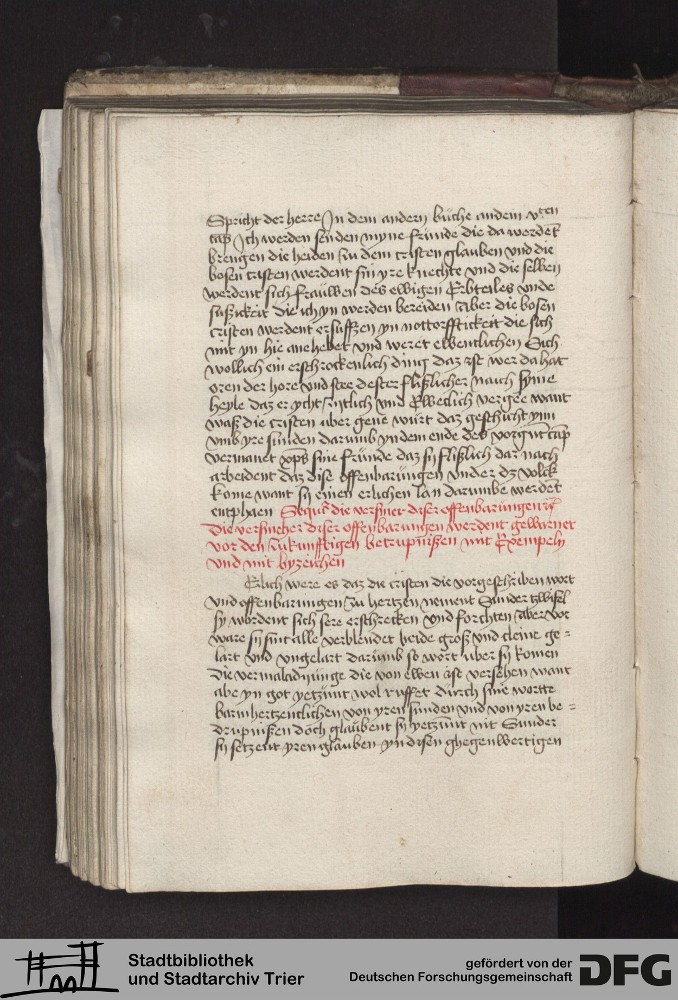 Spricht der herre In dem andern büche an dem vten
cap Ich werden senden myne frunde die da werdet
brengen die heiden zu dem cristen glauben vnd die
bosen cristen werdent sin yre knechte vnd die selben
werdent sich frauwen des ewigen Erbteiles vnde
sußickeit die ich yn werden bereiden aber die bosen
cristen werdent ersuffzen yn nottorfftickeit die sich
mit yn hie ane hebet vnd weret ewentlichen Sich
wollich ein erschrockenlich ding daz ist wer da hat
oren der hore vnd stee dester flißlicher nauch syme
heyle daz er ycht zijtlich vnd Eweclich vergee want
waß die cristen aber gene wurt daz geschicht ynn
vmb yre sunden darumb yn dem ende des cap
vermanet xps sine frunde daz sy flißlich dar nach
arbeident daz dise offenbarungen vnder dz volck
kome want sy einen erlichen lan darumbe werdet
entphaen die diser offenbarungen
Die versucher diser offenbarungen werdent gewarnet
vor den zukunfftigen betrupnißen mit Exempeln
vnd mit byzeichen
Erlich were es daz die cristen die vorgeschriben wort
vnd offenbarungen zu hertzen nement Sunder zwifel
sy wordent sich sere erschrecken vnd forchten aber vor
ware sy sint alle verblendet beide groß vnd cleine ge=
lart vnd vngelart darumb so wort uber sy komen
die vermaladyunge die von ewen ist versehen want
abe yn got yetzunt wol ruffet durch sine wortte
barmhertzentlichen von yren sunden vnd von yren be=
drupnißen doch glaubent sy yetzunt nit Sunder
sy setzent yren glauben yn disen ghegenwertigen
Stadtbibliothek
und Stadtarchiv Trier
gefördert von der
Deutschen Forschungsgemeinschaft
DFG